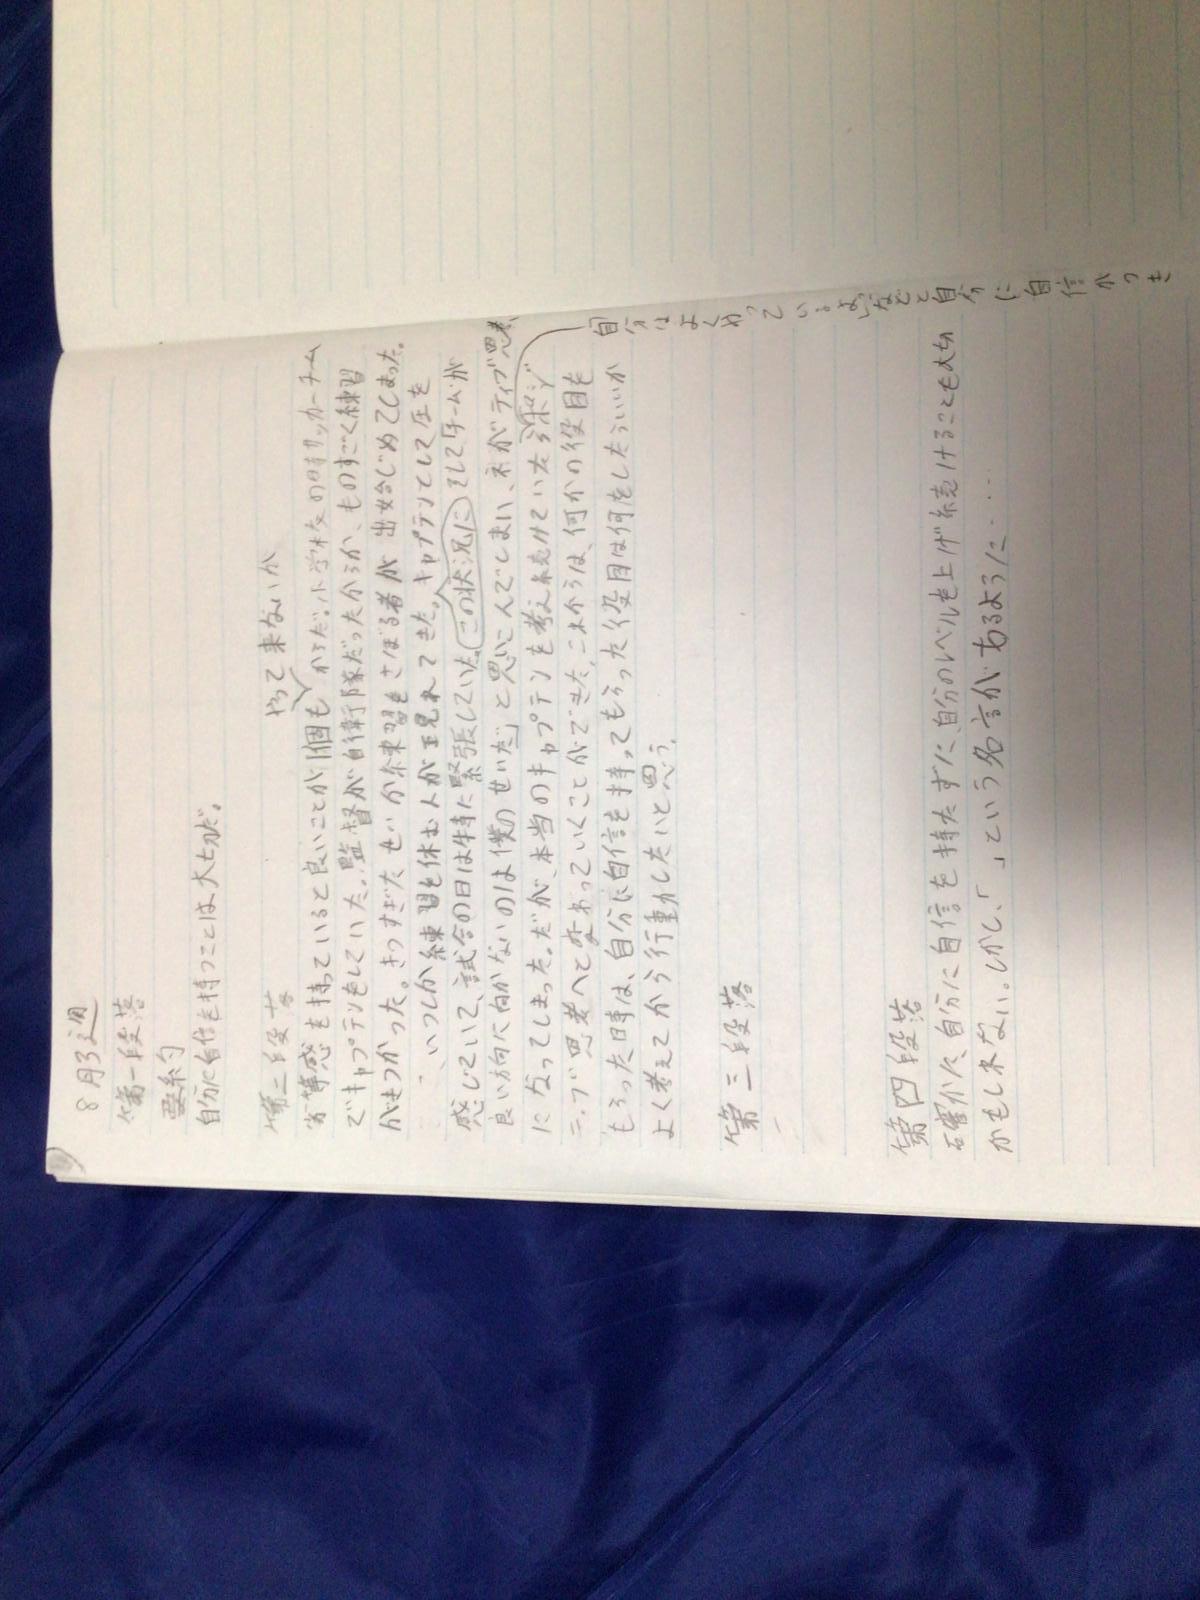 8月3週
第一段落
要約
自分に自信を持つことは大切だ。
第二段落
やって来ないか
劣等感を持っていると良いことが1個もからだ。小学校の時サッカーチーム
でキャプテンをしていた。監督が自衛隊だったからか、ものすごく練習
がきつかった。きつすぎたせいか練習をさぼる者が出始じめてしまった。
いつしか練習を休む人が現れてきた。キャプテンとして圧を
感じていて、試合の日は特に緊張していた。この状況にそして「チームが
良い方向に向かないのは僕のせいだ」と思いこんでしまい、ネガティブ思考
になってしまった。だが、本当のキャプテンを考え続けていたらポジ
「自分はよくやっているよ」などと自分に自信がつき
ティブ思考へと変わっていくことができた。これからは、何かの役目を
もらった時は、自分に自信を持ってもらった役目は何をしたらいいか
よく考えてから行動したいと思う。
第三段落
第四段落
確かに、自分に自信を持たずに、自分のレベルを上げ続けることも大切
かもしれない。しかし、「 」という名言があるように....